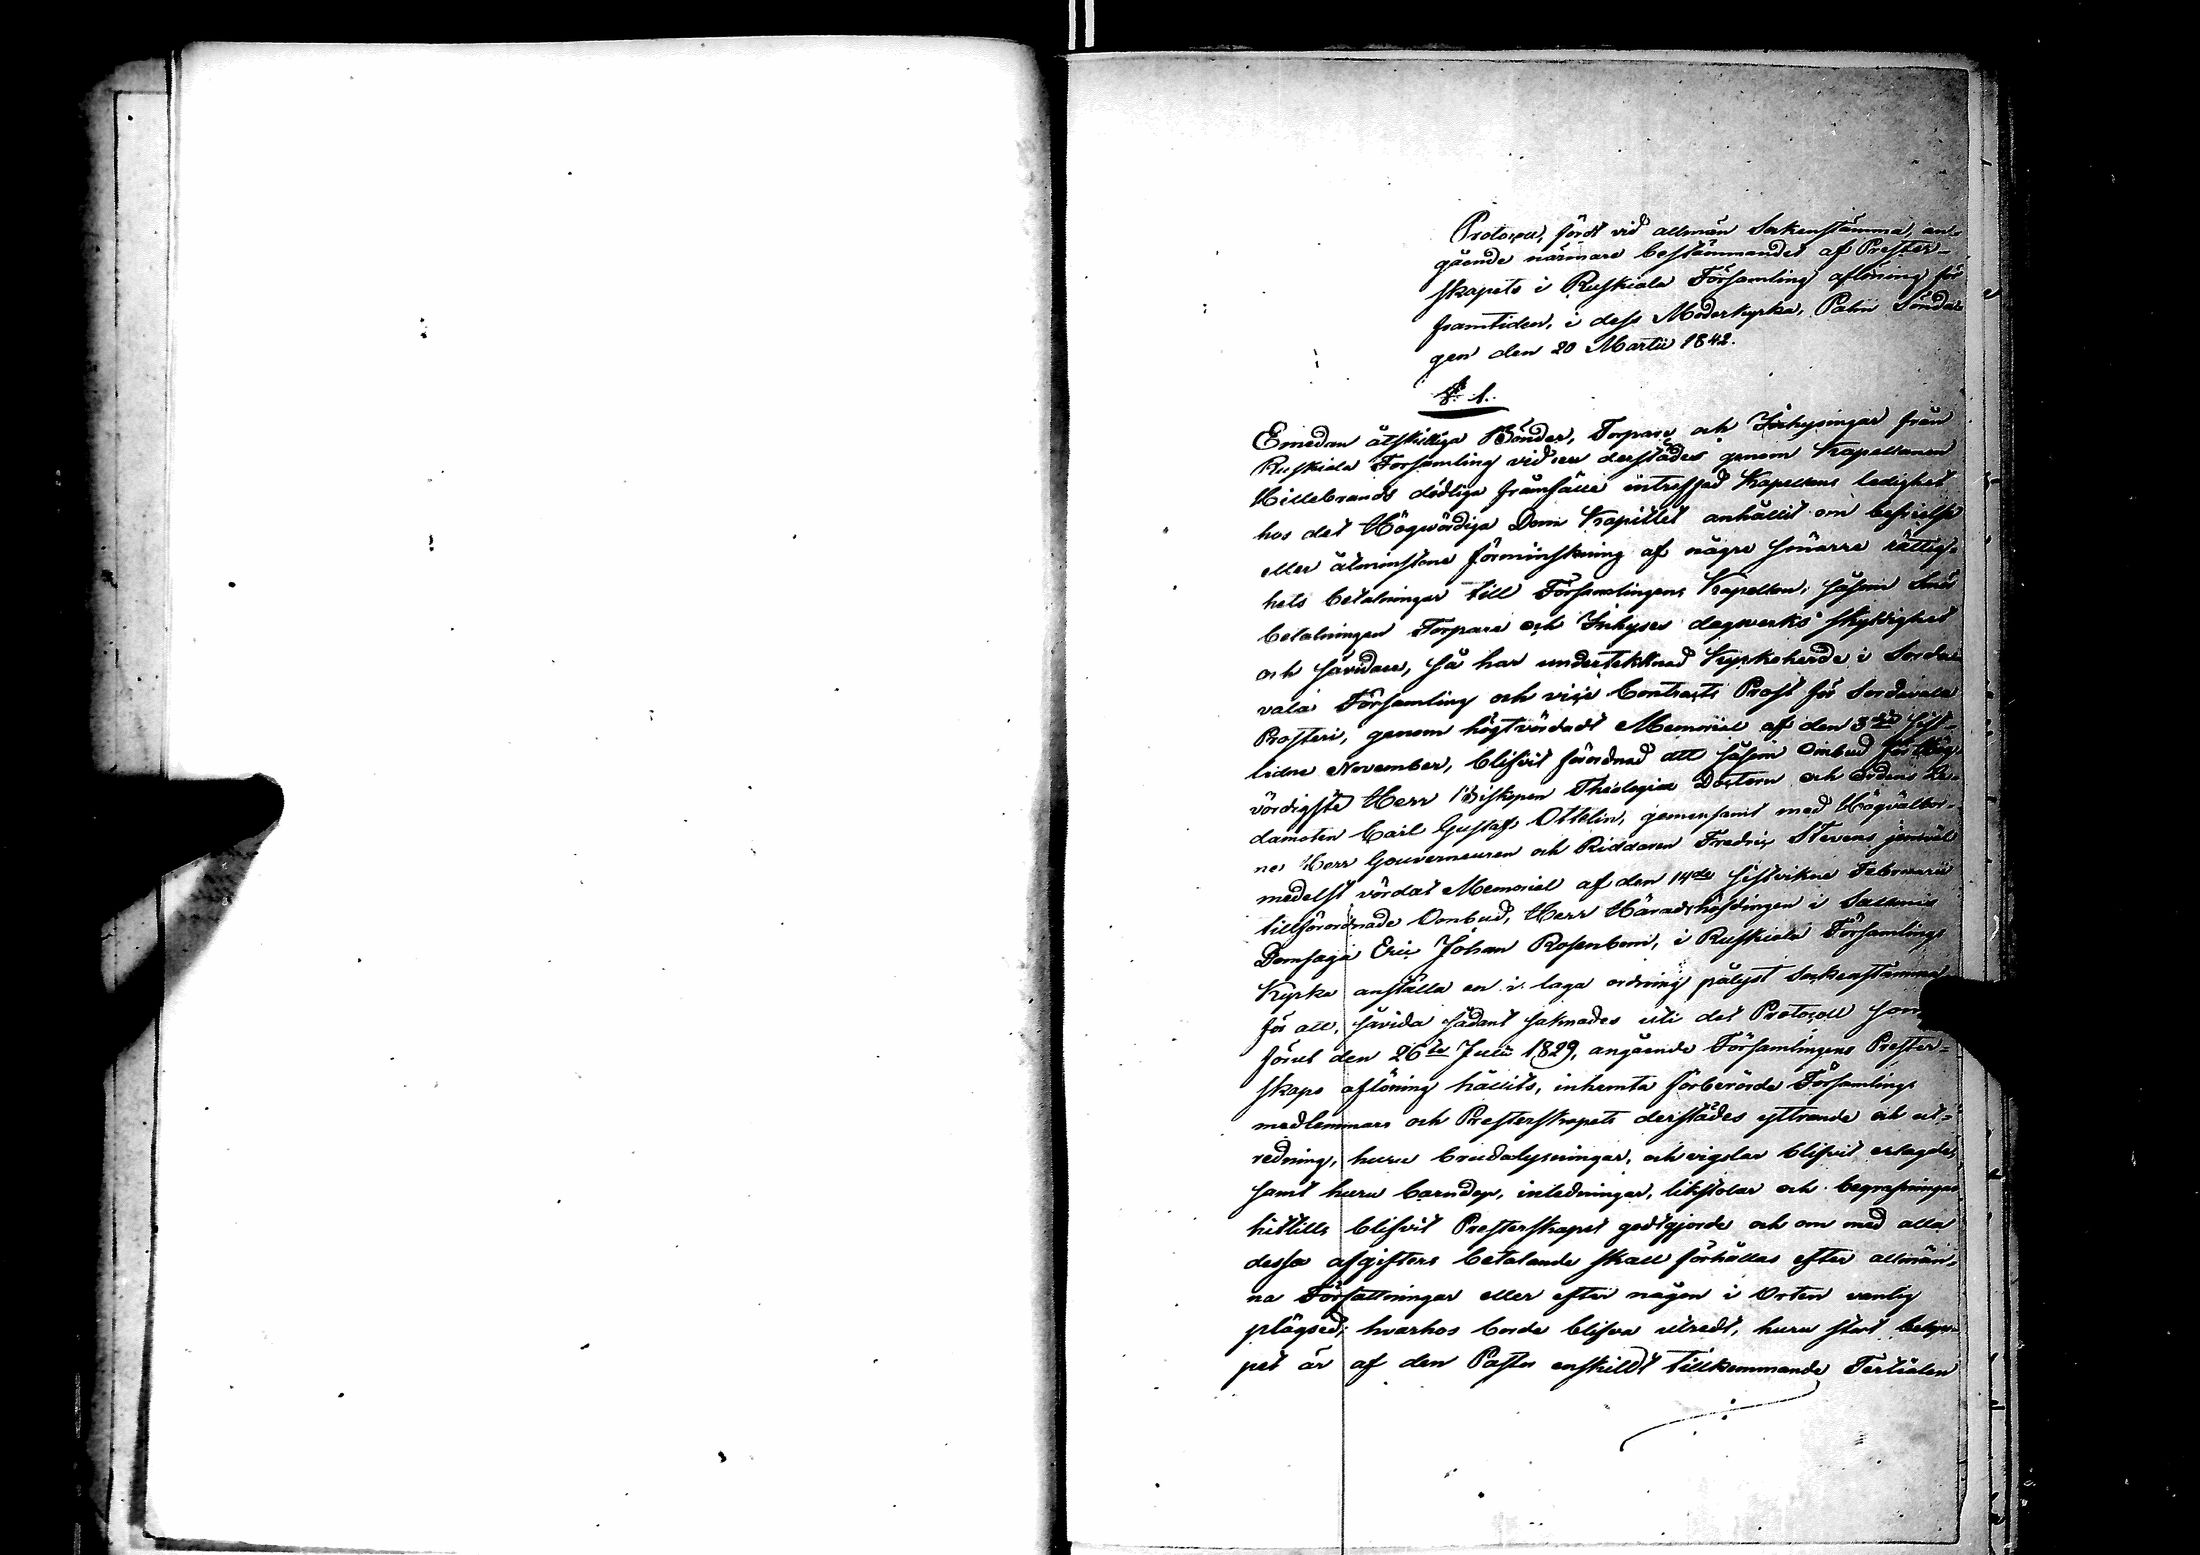 Protocoll, fördt vid allmän Sockenstämma, an-
gående närmare bestämmandet af Prester-
skapets i Ruskiala Församling aflöning för
framtiden, i dess Moderkyrka, Palm Sönda-
gen den 20 Martii 1842.
§. 1.
Emedan åtskillige Bönder, Torpare och Inhysingar från
Ruskiala Församling vid en derstädes genom Kapellanen
Hillebrands dödliga frånfälle inträffad Kapellans ledighet
hos det Högvördiga Dom Kapitlet anhållit om befrielse
eller åtminstone förminskning af några smärre rättig-
hets betalningar till Församlingens Kapellan, såsom Små
betalningen Torpare och Inhyses dagsverks skyldighet
och såvidare, så har undertecknad Kyrkoherde i Sorda-
vala Församling och vice Contracts Prost för Sordavala
Prosteri, genom högtvördadt Memorial af den 3die sist-
lidne November, blifvit förordnad att såsom Ombud för Hög-
vördigste Herr Biskopen Theologiæ Doctorn och Ordens Le-
damoten Carl Gustaf Ottelin, gemensamt med Högvälbor-
ne Herr Gouverneuren och Riddaren Fredric Stevens jemväl
medelst vördat Memorial af den 14de sistvikne Februarii
tillförordnade Ombud, Herr Häradshöfdingen i Salmis
Domsaga Eric Johan Rosenbom, i Ruskiala Församlings
Kyrka anställa en i laga ordning pålyst Sockenstämma
för att, såvida sådant saknades uti det Protocoll som
förut den 26te Julii 1829, angående Församlingens Prester-
skaps aflöning hållits, inhemta förberörde Församlings
medlemmars och Presterskapets derstädes yttrande och ut-
redning, huru brudalysningar, och vigslar blifvit erlagde,
samt huru barndop, inledningar, likstolar och begrafningar
hittills blifvit Presterskapet godtgjorde och om med alla
dessa afgifters betalande skall förhållas efter allmän-
na Författningar eller efter någon i Orten vanlig
plägsed; hvarhos borde blifva utredt, huru stort belop-
pet är af den Pastor enskildt tillkommande Tertialen